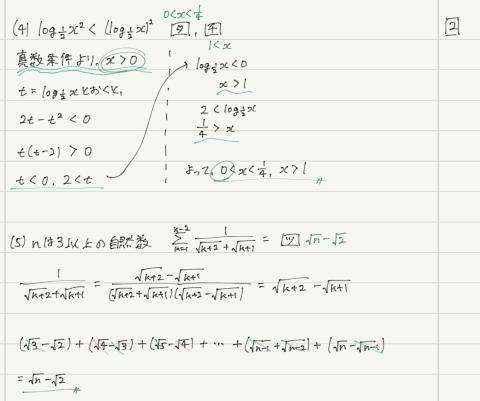 0<x<1/4
(4) log_{1/2} x² < (log_{1/2} x)² タ, チ
2
1<x
真数条件より, x>0
t = log_{1/2} x とおくと,
2t - t² < 0
t(t-2) > 0
t<0, 2<t
log_{1/2} x < 0
x > 1
2 < log_{1/2} x
1/4 > x
よって, 0<x<1/4, x>1
(5) nは3以上の自然数 Σ_{k=1}^{n-2} 1/(√k+2 + √k+1) = ツ √n-√2
1/(√k+2+√k+1) = (√k+2-√k+1)/((√k+2+√k+1)(√k+2-√k+1)) = √k+2 - √k+1
(√3-√2) + (√4-√3) + (√5-√4) + … + (√n-1+√n-2) + (√n-√n-1)
= √n-√2